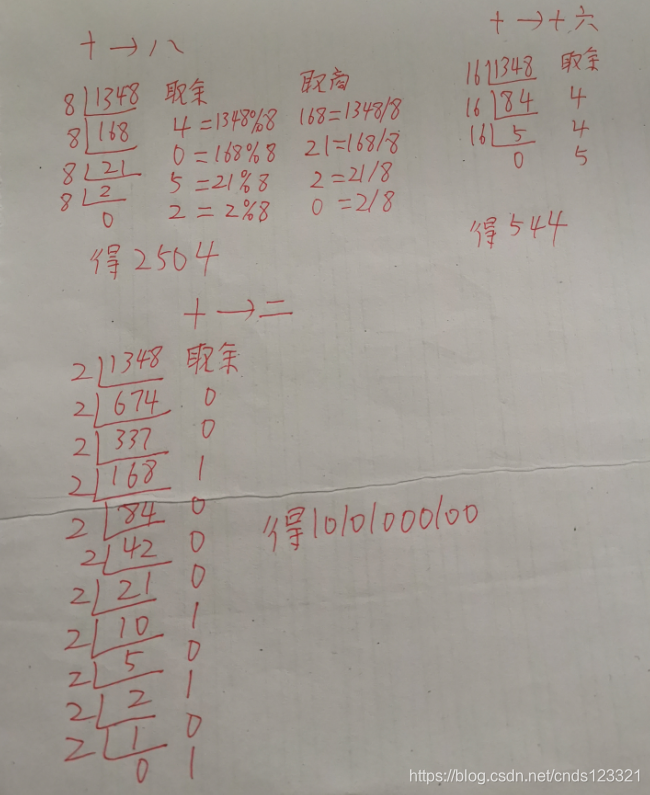 十→八
8 1348 取余 取商
8 168 4=1348%8 168=1348/8
8 21 0=168%8 21=168/8
8 2 5=21%8 2=21/8
0 2=2%8 0=2/8
得2504
十→十六
16 1348 取余
16 84 4
16 5 4
0 5
得544
十→二
2 1348 取余
2 674 0
2 337 0
2 168 1
2 84 0
2 42 0
2 21 0
2 10 1
2 5 0
2 2 1
2 1 0
0 1
得10101000100
https://blog.csdn.net/cnds123321